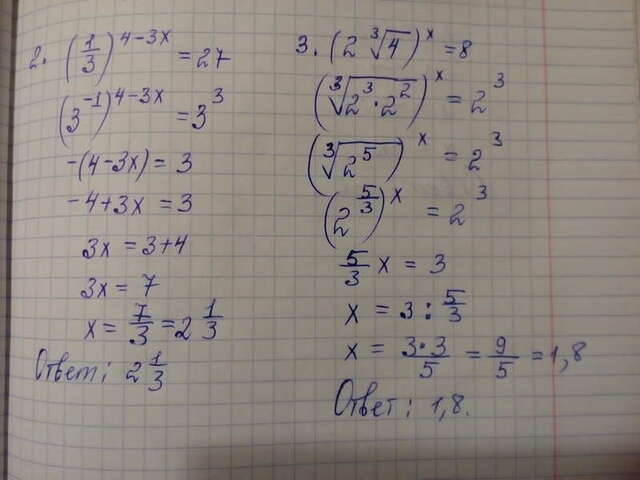 2. (1/3)^(4-3x) = 27
(3^(-1))^(4-3x) = 3^3
-(4-3x) = 3
-4+3x = 3
3x = 3+4
3x = 7
x = 7/3 = 2 1/3
Ответ: 2 1/3
3. (2 ∛4)^x = 8
(∛(2^3·2^2))^x = 2^3
(∛(2^5))^x = 2^3
(2^(5/3))^x = 2^3
5/3 x = 3
x = 3 : 5/3
x = 3·3/5 = 9/5 = 1,8
Ответ: 1,8.